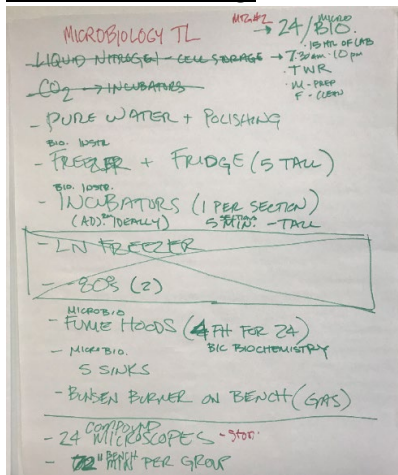 MICROBIOLOGY TL
MTG#2 → 24/MICRO BIO.
· 15 HR OF LAB
LIQUID NITROGEN - CELL STORAGE → 7:30am - 10pm
· TWR
CO2 → INCUBATORS
· M - PREP
F - CLEAN
- PURE WATER + POLISHING
BIO. INSTR.
- FREEZER + FRIDGE (5 TALL)
BIO. INSTR.
- INCUBATORS (1 PER SECTION)
(ADJ. IDEALLY) 5 SECTIONS MIN. - TALL
- LN FREEZER
- -80s (2)
MICROBIO
- FUME HOODS (4 FH FOR 24)
B/C BIOCHEMISTRY
- MICROBIO.
5 SINKS
- BUNSEN BURNER ON BENCH (GAS)
- 24 COMPOUND MICROSCOPES - stor.
- 72" BENCH MIN PER GROUP